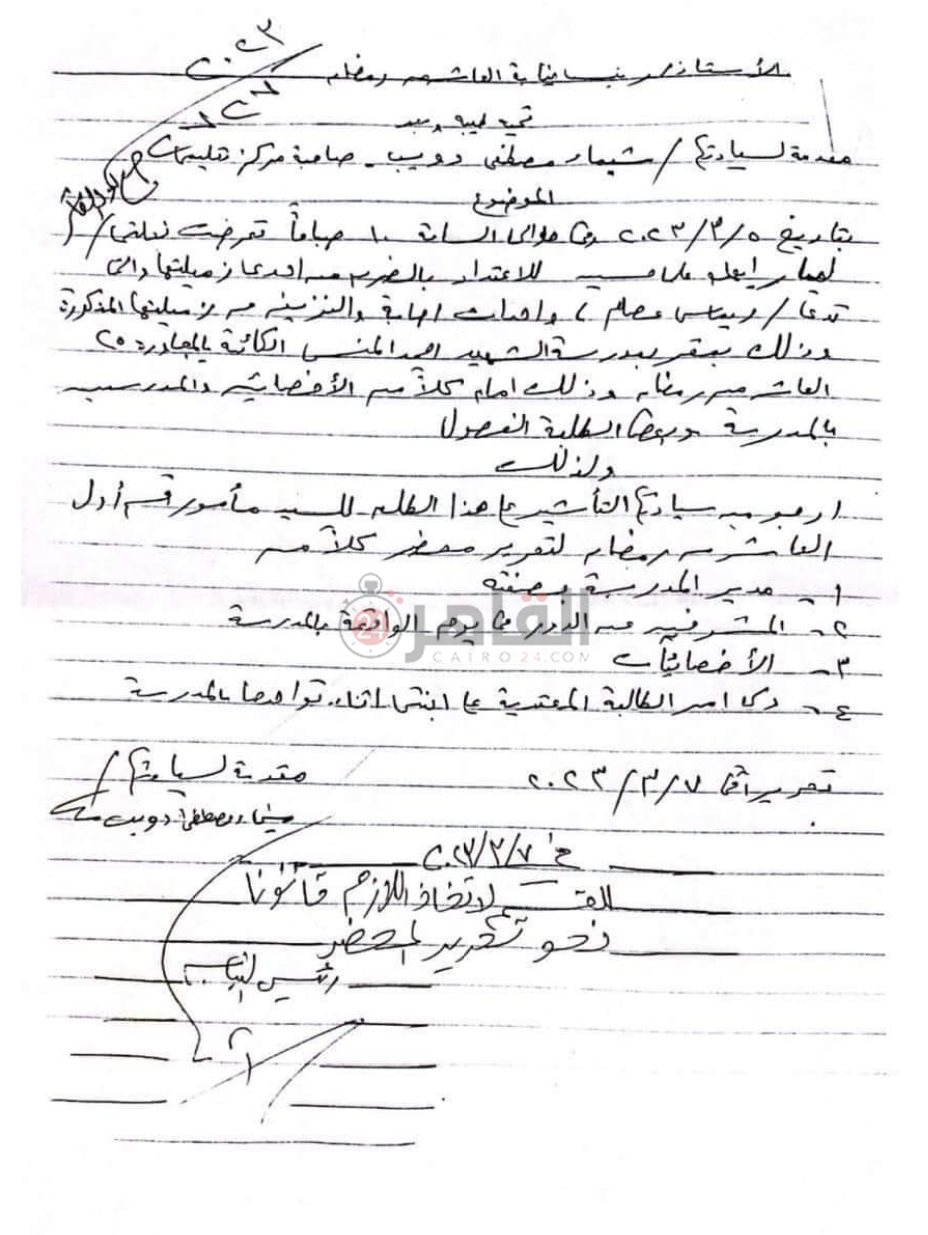 الأستاذ / رئيس نيابة العاشر من رمضان
٢٠٢٣
تحية طيبة وبعد
مقدمة لسيادتكم / شيماء مصطفى دويب - صاحبة مركز تعليمات
الموضوع
بتاريخ ٢٠٢٣/٣/٥ وفي حوالي الساعة ١٠ صباحاً تعرضت نجلتي /
للاعتداء بالضرب من احدى زميلتها والتى
تدعا / عصام ) واحداث اصابة والنزيف من زميلتها المذكورة
وذلك بمقر بمدرسة الشهيد احمد المنسى الكائنة بالمجاورة ٢٥
العاشر من رمضان وذلك امام كلاً من الأخصائيه والمدرسين
بالمدرسة وبعض الطلبة الفصول
ولذلك
ارجو من سيادتكم التأشير على هذا الطلب للسيد مأمور قسم أول
العاشر من رمضان لتحرير محضر كلاً من
١- مدير المدرسة بصفته
٢- المشرفين عن الدور فى يوم الواقعة بالمدرسة
٣- الأخصائيات
٤- ولى امر الطالبة المعتدية على ابنتى اثناء تواجدها بالمدرسة
القاهرة 24
CAIRO24.COM
تحريراً فى ٢٠٢٣/٣/٧
مقدمة لسيادتكم /
شيماء مصطفى دويب
٢٠٢٣/٣/٧
للقسم لاتخاذ اللازم قانونا
نحو تحرير المحضر
رئيس النيابة